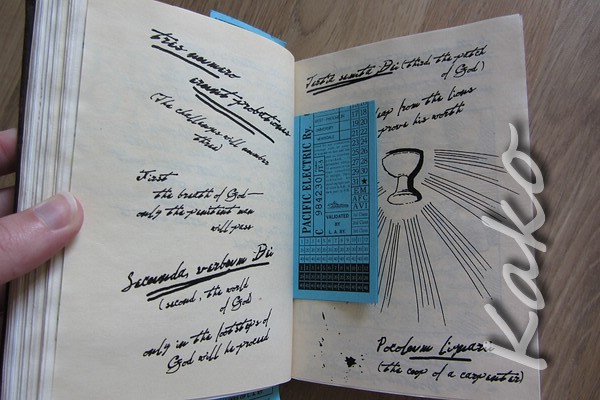 tres numero
erunt probationes
(The challenges will number
three)
First
the breath of God—
only the penitent man
will pass
Secunda, verbum Dei
(second, the world
of God)
only in the footsteps of
God will he proceed
Tertia semita Dei (third, the path
of God)
leap from the lions
prove his worth
PACIFIC ELECTRIC Ry.
C 984230
VALIDATED
Poculum lignari
(the coop of a carpenter)
Kako